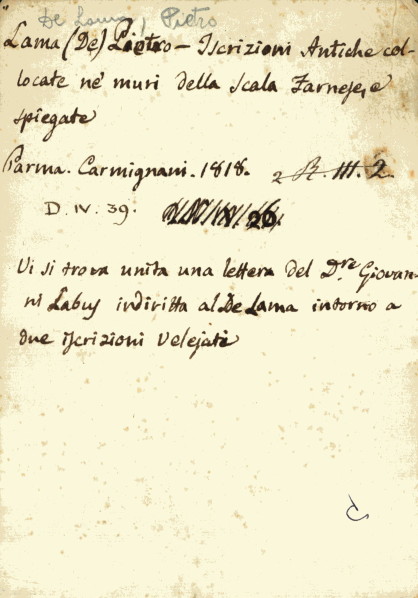 De Lama, Pietro
Lama (De) Pietro - Iscrizioni Antiche col-
locate ne' muri della Scala Farnese, e
spiegate
Parma. Carmignani. 1818. 2 R. III. 2
D. IV. 39. 26.
Vi si trova unita una lettera del D.re Giovan-
ni Labus indiritta al De Lama intorno a
due iscrizioni Velejati